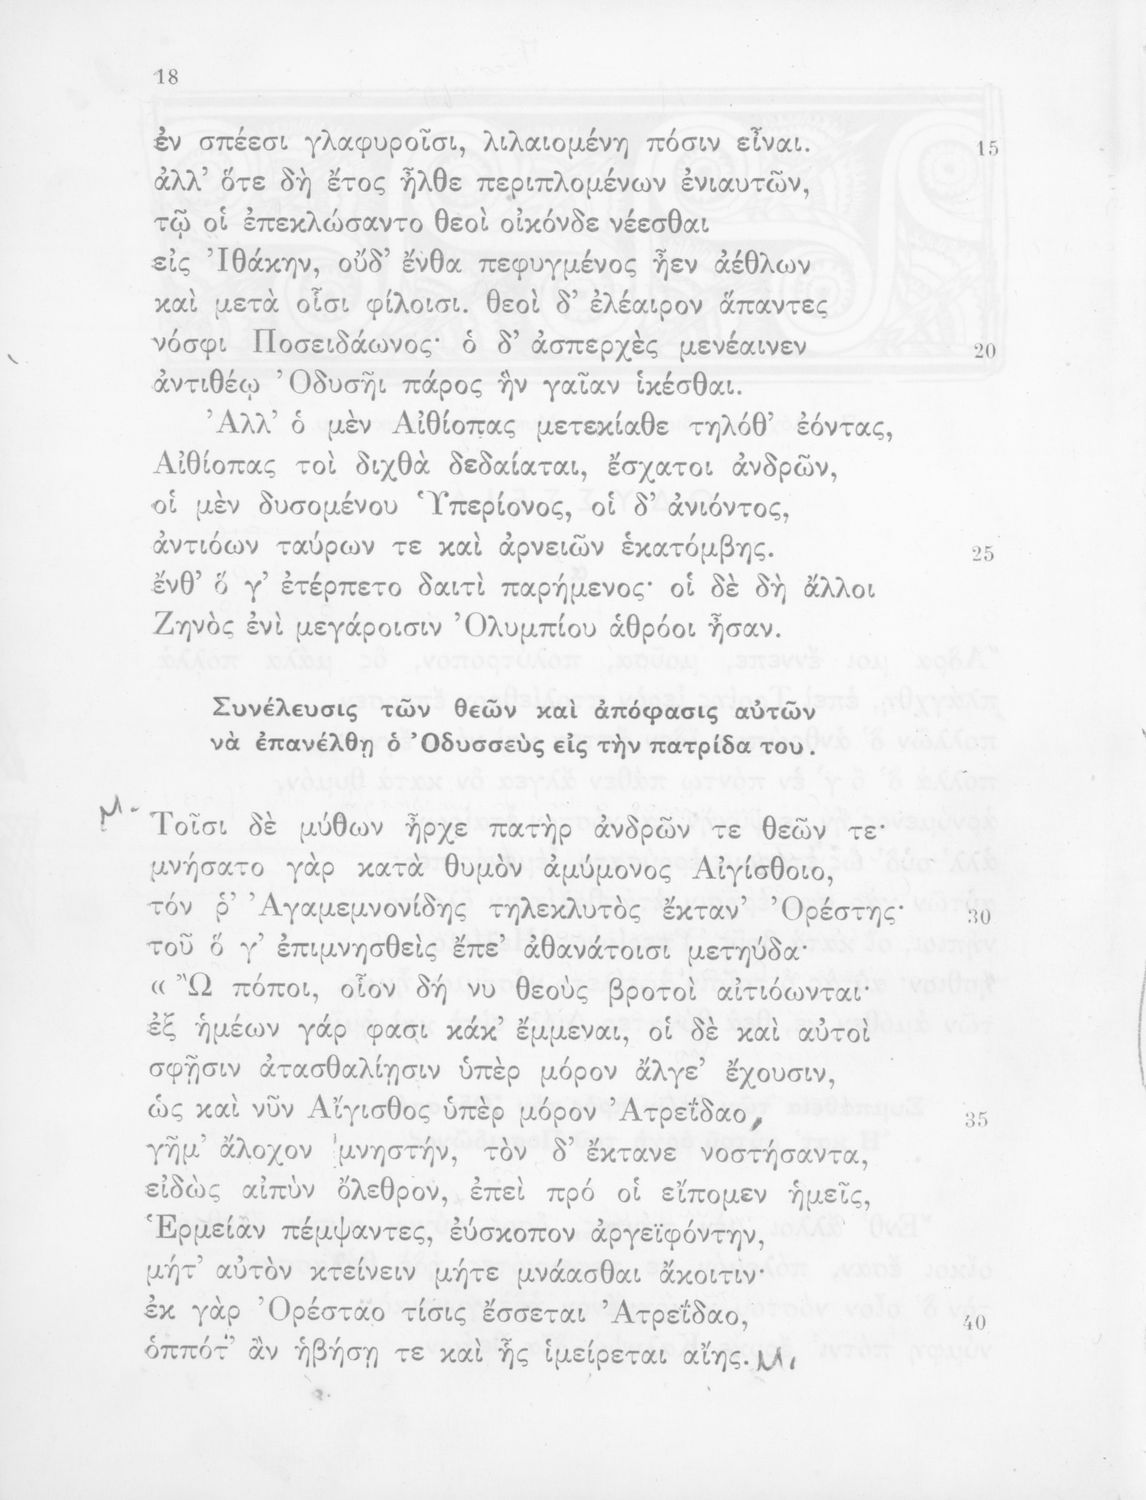 18
ἐν σπέεσι γλαφυροῖσι, λιλαιομένη πόσιν εἶναι. 15
ἀλλ’ ὅτε δὴ ἔτος ἦλθε περιπλομένων ἐνιαυτῶν,
τῷ οἱ ἐπεκλώσαντο θεοὶ οἰκόνδε νέεσθαι
εἰς Ἰθάκην, οὐδ’ ἔνθα πεφυγμένος ἦεν ἀέθλων
καὶ μετὰ οἷσι φίλοισι. θεοὶ δ’ ἐλέαιρον ἅπαντες
νόσφι Ποσειδάωνος· ὁ δ’ ἀσπερχὲς μενέαινεν 20
ἀντιθέῳ Ὀδυσῆι πάρος ἣν γαῖαν ἱκέσθαι.
Ἀλλ’ ὁ μὲν Αἰθίοπας μετεκίαθε τηλόθ’ ἐόντας,
Αἰθίοπας τοὶ διχθὰ δεδαίαται, ἔσχατοι ἀνδρῶν,
οἱ μὲν δυσομένου Ὑπερίονος, οἱ δ’ ἀνιόντος,
ἀντιόων ταύρων τε καὶ ἀρνειῶν ἑκατόμβης. 25
ἔνθ’ ὅ γ’ ἐτέρπετο δαιτὶ παρήμενος· οἱ δὲ δὴ ἄλλοι
Ζηνὸς ἐνὶ μεγάροισιν Ὀλυμπίου ἁθρόοι ἦσαν.
Συνέλευσις τῶν θεῶν καὶ ἀπόφασις αὐτῶν
νὰ ἐπανέλθῃ ὁ Ὀδυσσεὺς εἰς τὴν πατρίδα του.
Τοῖσι δὲ μύθων ἦρχε πατὴρ ἀνδρῶν τε θεῶν τε·
μνήσατο γὰρ κατὰ θυμὸν ἀμύμονος Αἰγίσθοιο,
τόν ῥ’ Ἀγαμεμνονίδης τηλεκλυτὸς ἔκταν’ Ὀρέστης· 30
τοῦ ὅ γ’ ἐπιμνησθεὶς ἔπε’ ἀθανάτοισι μετηύδα·
«Ὢ πόποι, οἷον δή νυ θεοὺς βροτοὶ αἰτιόωνται·
ἐξ ἡμέων γάρ φασι κάκ’ ἔμμεναι, οἱ δὲ καὶ αὐτοὶ
σφῇσιν ἀτασθαλίῃσιν ὑπὲρ μόρον ἄλγε’ ἔχουσιν,
ὡς καὶ νῦν Αἴγισθος ὑπὲρ μόρον Ἀτρεΐδαο, 35
γῆμ’ ἄλοχον μνηστήν, τὸν δ’ ἔκτανε νοστήσαντα,
εἰδὼς αἰπὺν ὄλεθρον, ἐπεὶ πρό οἱ εἴπομεν ἡμεῖς,
Ἑρμείαν πέμψαντες, ἐύσκοπον ἀργεϊφόντην,
μήτ’ αὐτὸν κτείνειν μήτε μνάασθαι ἄκοιτιν·
ἐκ γὰρ Ὀρέσταο τίσις ἔσσεται Ἀτρεΐδαο, 40
ὁππότ’ ἂν ἡβήσῃ τε καὶ ἧς ἱμείρεται αἴης.